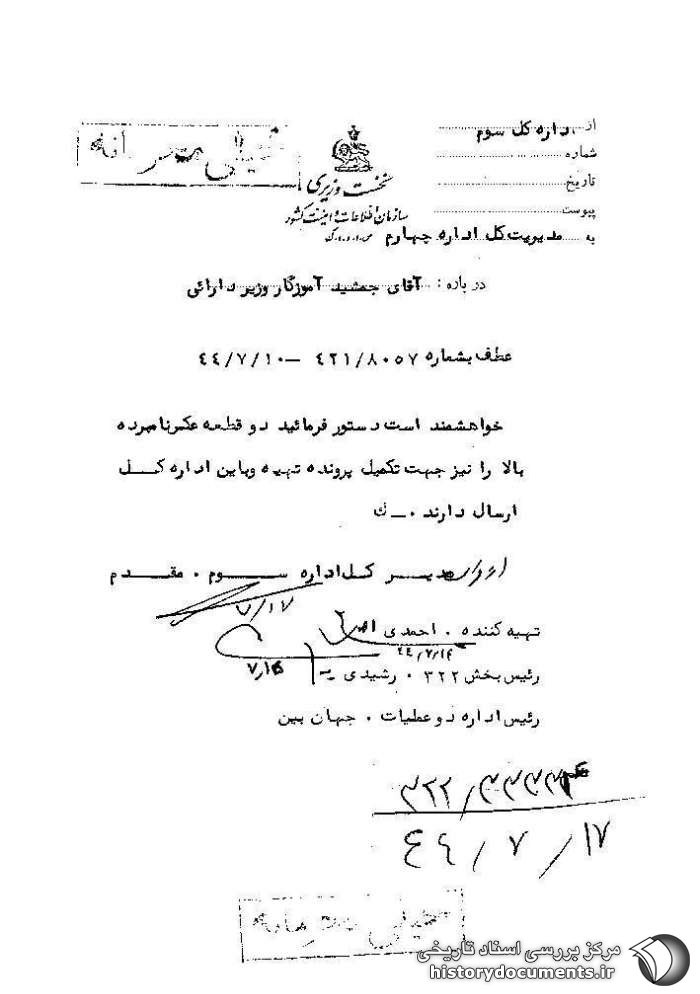 از اداره کل سوم
خیلی محرمانه
شماره
نخست وزیری
تاریخ
سازمان اطلاعات و امنیت کشور
پیوست
به مدیریت کل اداره چهارم
س.ا.و.ا.ک
درباره : آقای جمشید آموزگار وزیر دارائی
عطف بشماره ۴۲۱/۸۰۵۷ – ۴۴/۷/۱۰
خواهشمند است دستور فرمائید دو قطعه عکس نامبرده
بالا را نیز جهت تکمیل پرونده تهیه وباین اداره کل
ارسال دارند . ک
مدیر کل اداره سوم . مقدم
۷/۱۷
تهیه کننده . احمدی
رئیس بخش ۳۲۲ . رشیدی
رئیس اداره دو عملیات . جهان بین
۴۴ / ۷ / ۱۷
خیلی محرمانه
مرکز بررسی اسناد تاریخی
historydocuments.ir